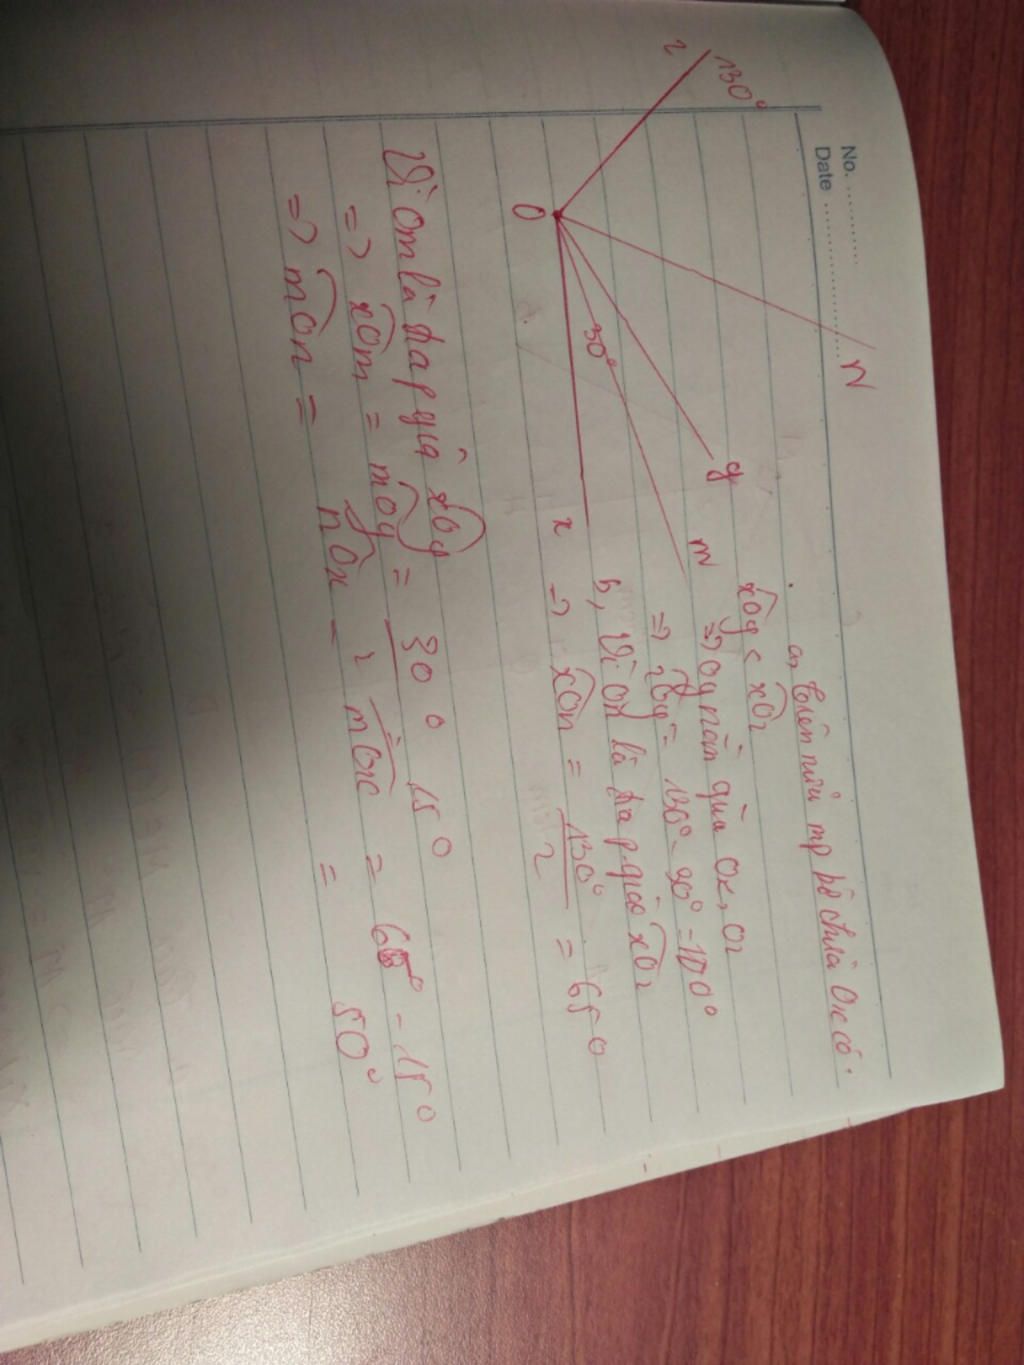 No. ............
Date ............
130°
z
N
y
m
30°
O
x
a, Trên nửa mp bờ chứa Ox có:
xOy < xOz
=> Oy nằm giữa Ox, Oz
=> zOy = 130° - 30° = 100°
b, Vì On là tia p.giác xOz
=> xOn = 130° / 2 = 65°
Vì Om là tia p giá xOy
=> xOm = mOy = 30° 15°
=> mOn = nOx - mOx = 65° - 15°
= 50°